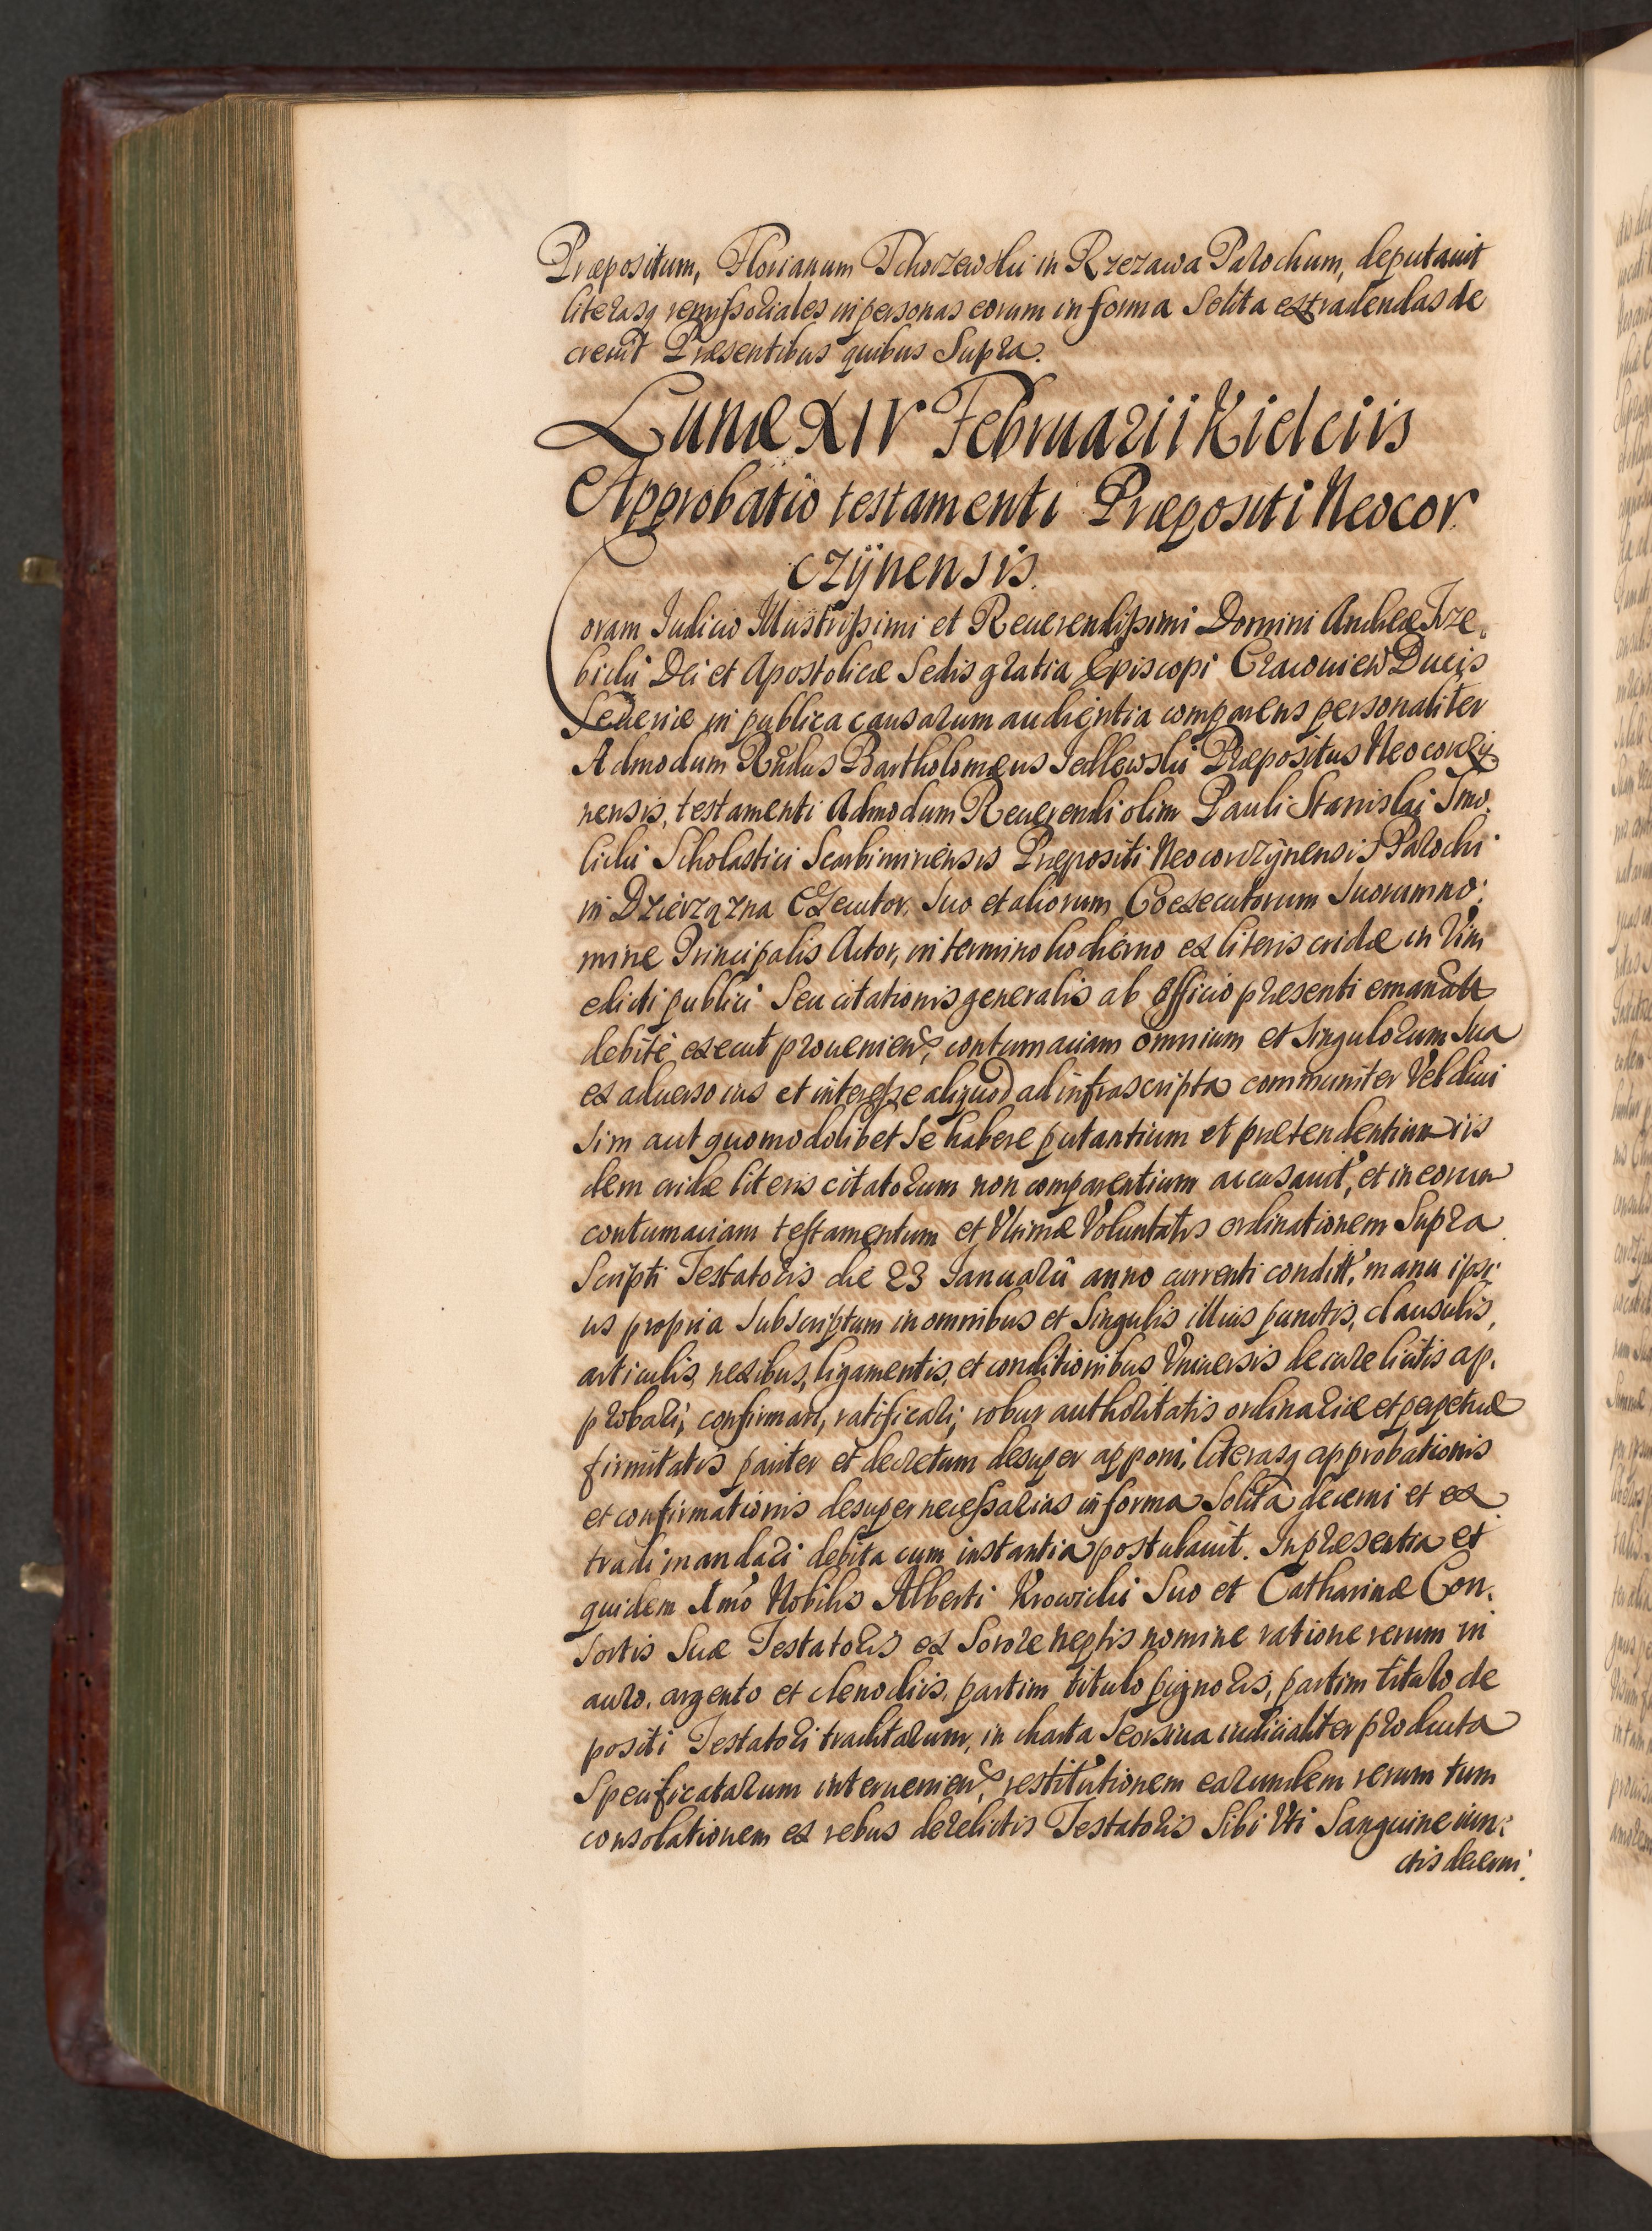 Præpositum, Florianum Tchorzewski in Rzezawa Parochum, deputauit
literasq remissoriales in personas eorum in forma Solita extradendas de
creuit Præsentibus quibus Supra.
Lunæ XIV Februarii Kielciis
Approbatio testamenti Præpositi Neocor
czÿnensis.
Coram Iudicio Illustrissimi et Reuerendissimi Domini Andreæ Trze
bicki Dei et Apostolicæ Sedis gratia Episcopi Cracouien Ducis
Seueriæ in publica causarum audientia comparens personaliter
Admodum Rndus Bartholomæus Sedlewski Præpositus Neocorczÿ
nensis, testamenti Admodum Reuerendi olim Pauli Stanislai
licki Scholastici Scarbimiriensis Præpositi Neocorczÿnensis Parochi
in Dzierzązna Executor, Suo et aliorum Coexecutorum Suorum no:
mine Principalis Actor, in termino hodierno ex literis cridæ in Vim
edicti publici Seu citationis generalis ab Officio præsenti emanatis
debitè execut proueniens, contumaciam omnium et Singulorum Sua
ex aduerso ius et interesse aliquod ad infrascripta communiter Vel diui
sim aut quomodolibet Se habere putantium et prætendentium iis
dem cridæ literis citatorum non comparentium accusauit, et in eorum
contumaciam testamentum et Vltimæ Voluntatis ordinationem Supra
Scripti Testatoris die 23 Ianuarii anno currenti condit, manu ipsi
us propria Subscriptum in omnibus et Singulis illius punctis, clausulis,
articulis, nexibus, ligamentis, et conditionibus Vniuersis de iure licitis ap.
probari, confirmari, ratificari, robur authoritatis ordinariæ et perpetuæ
firmitatis pariter et decretum desuper apponi, literasq approbationis
et confirmationis desuper necessarias in forma Solita decerni et ex
tradi mandari debita cum instantia postulauit. In præsentia et
quidem Imo Nobilis Alberti Krowicki Suo et Catharinæ Con.
Sortis Suæ Testatoris ex Sorore neptis nomine ratione rerum in
auro, argento et clenodiis, partim titulo pignoris, partim titulo de
positi Testatori traditarum, in charta Seorsiua iudicialiter producta
Specificatarum interueniens, restitutionem earundem rerum tum
consolationem ex rebus derelictis Testatoris Sibi Vti Sanguine iun:
ctis decerni.